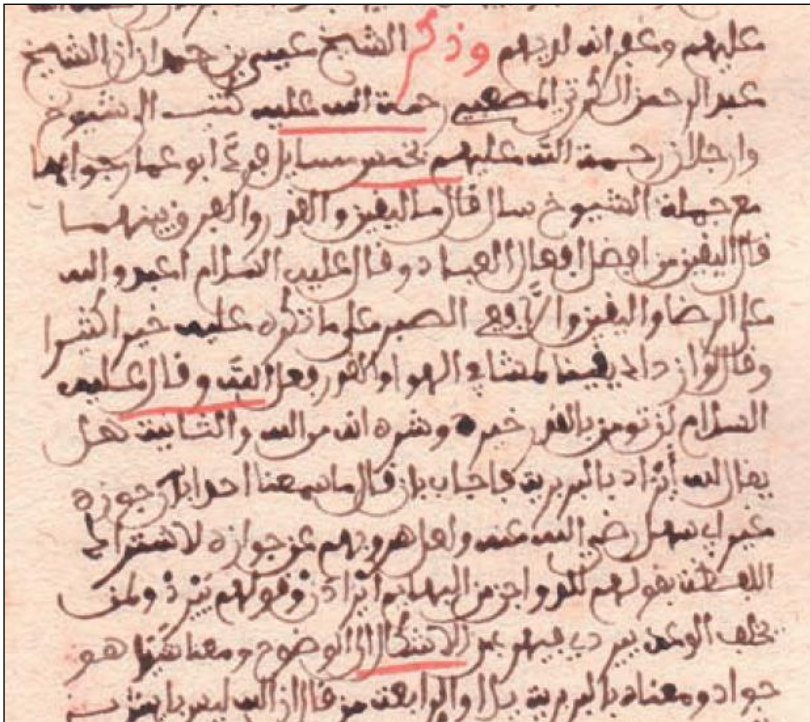 عليهم وغفر الله لديهم وذكر الشيخ عيسى بن حمد ان الشيخ
عبد الرحمن الكرتي المصعبي رحمة الله عليه كتب الى شيوخ
وارجلان رحمة الله عليهم بخمس مسايل ابو عمار جوابها
مع جملة الشيوخ سال فقال ما اليقين والقدر والفرق بينهما
قال اليقين من افضل افعال العباد وقال عليه السلام اعبدوا الله
على الرضا واليقين والا ففي الصبر على ما تكره عليه خير اكثيرا
وقال لو ازداد يقينا لمشا في الهوا والقدر فعل الله وقال عليه
السلام لن تومن بالقدر خيره وشره انه من الله والثانية هل
يقال لله أيراد بالبربرية فاجاب بان قال ما سمعنا احدا جوزه
غير ابي سهل رضي الله عنه ولعل هروبهم عن جوازه لاشتراك
اللفظة بقولهم من البهايم وقولهم
يخلف الوعد عن الاشكال الى الوضوح ومعنا هو
جواد ومعناه بالبربرية والرابعة من قال ان الله ليس